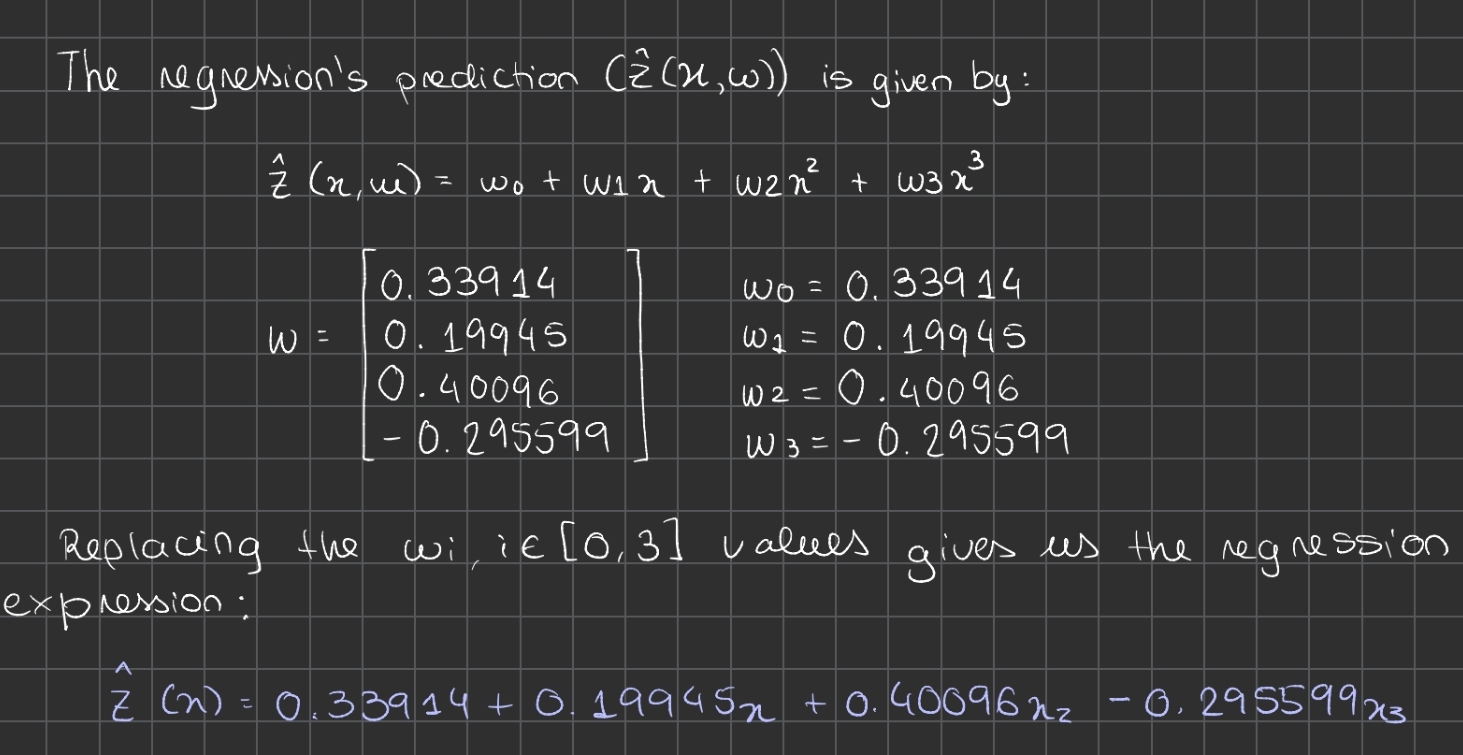 The regression's prediction (ẑ(x,w)) is given by:
ẑ (x,w) = w0 + w1x + w2x² + w3x³
w = [0.33914 w0 = 0.33914
0.19945 w1 = 0.19945
0.40096 w2 = 0.40096
-0.295599] w3 = -0.295599
Replacing the wi, i∈[0,3] values gives us the regression
expression:
ẑ (x) = 0.33914 + 0.19945x + 0.40096x₂ - 0.295599x₃